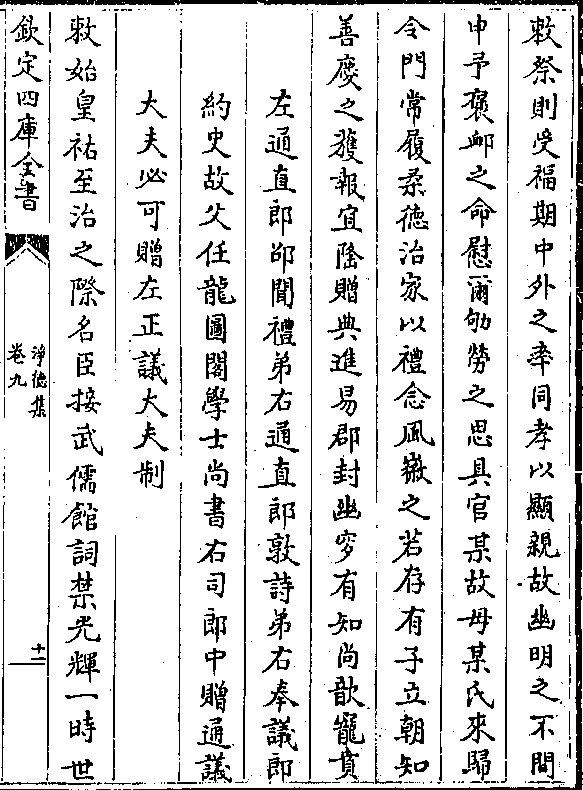 敕祭則受福期中外之率同孝以顯親故幽明之不間
申予褒卹之命慰爾劬勞之思具官某故母某氏來歸
令門常履柔德治家以禮念風徽之若存有子立朝知
善慶之獲報宜隆贈典進易郡封幽穸有知尚歆寵賁
左通直郎邵聞禮弟右通直郎敦詩弟右奉議郎
約史故父任龍圖閣學士尚書右司郎中贈通議
大夫必可贈左正議大夫制
敕始皇祐至治之際名臣接武儒館詞禁光輝一時世
欽定四庫全書
淨德集
卷九
十一